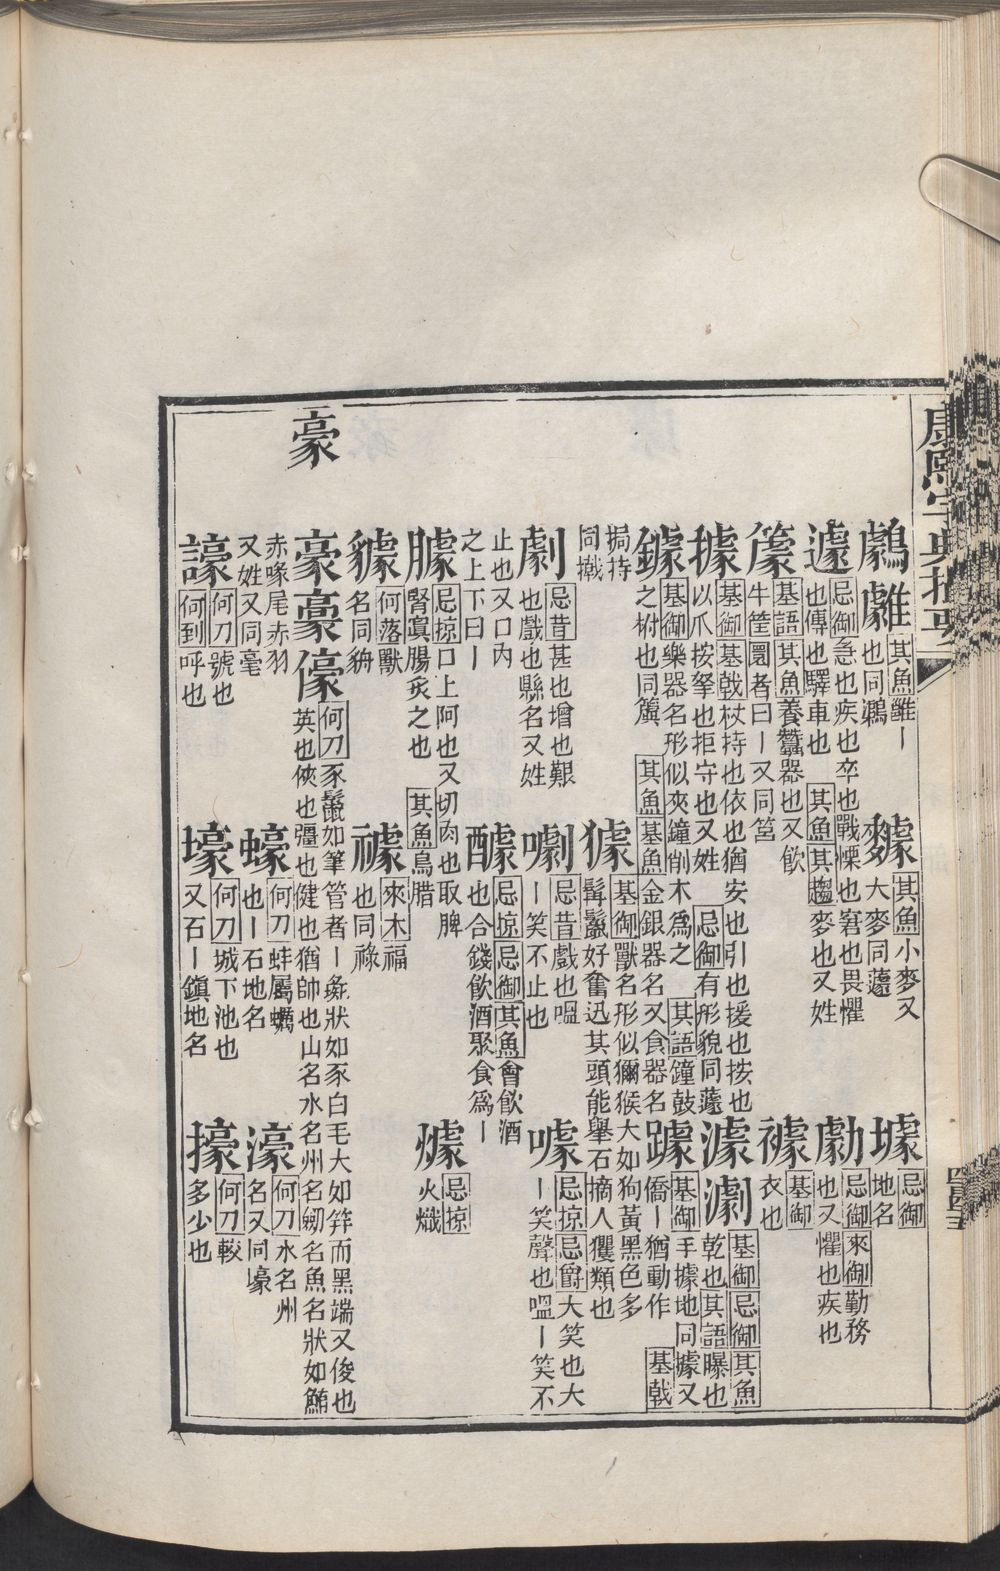 康熙字典撮要
鷉
䧧
其魚雝丨也同鶋
䴦
其魚小麥又大麥同蘧
壉
忌御地名
遽
忌御急也疾也卒也戰慄也窘也畏懼也傳也驛車也
其魚其趨麥也又姓
勮
忌御來御勤務也又懼也疾也
籧
基語其魚養蠶器也又飲牛筐圜者曰丨又同筥
襷
基御衣也
據
基御基戟杖持也依也猶安也引也援也按也以爪按拏也拒守也又姓
忌御有形貌同蘧
澽
瀱
基御忌御其魚乾也其語曝也
鐻
基御樂器名形似夾鐘削木爲之
其語鐘鼓之柎也同簴
其魚基魚金銀器名又食器名
躆
基御手據地同據又僑丨猶動作
基戟挶持同撠
㹤
基御獸名形似獼猴大如狗黃黑色多髯鬛好奮迅其頭能舉石擿人玃類也
劇
忌昔甚也增也艱也戲也縣名又姓
噱
忌昔戲也嗢丨笑不止也
噱
忌掠忌爵大笑也大丨笑聲也嗢丨笑不止也又口內之上下曰丨
醵
忌掠忌御其魚會飲酒也合錢飲酒聚食爲丨
臄
忌掠口上阿也又切肉也取脾腎寘腸炙之也
其魚鳥腊
爈
忌掠火熾
貜
何落獸名同貈
禭
來木福也同祿
豪
豪
豪
儫
何刀豕鬣如筆管者丨彘狀如豕白毛大如筓而黑端又俊也英也俠也彊也健也猶帥也山名水名州名劒名魚名狀如鮪赤喙尾赤羽又姓又同毫
蠔
何刀蚌屬蠣也丨石地名
濠
何刀水名州名又同壕
譹
何刀號也
何到呼也
壕
何刀城下池也又石丨鎭地名
㩝
何刀較多少也